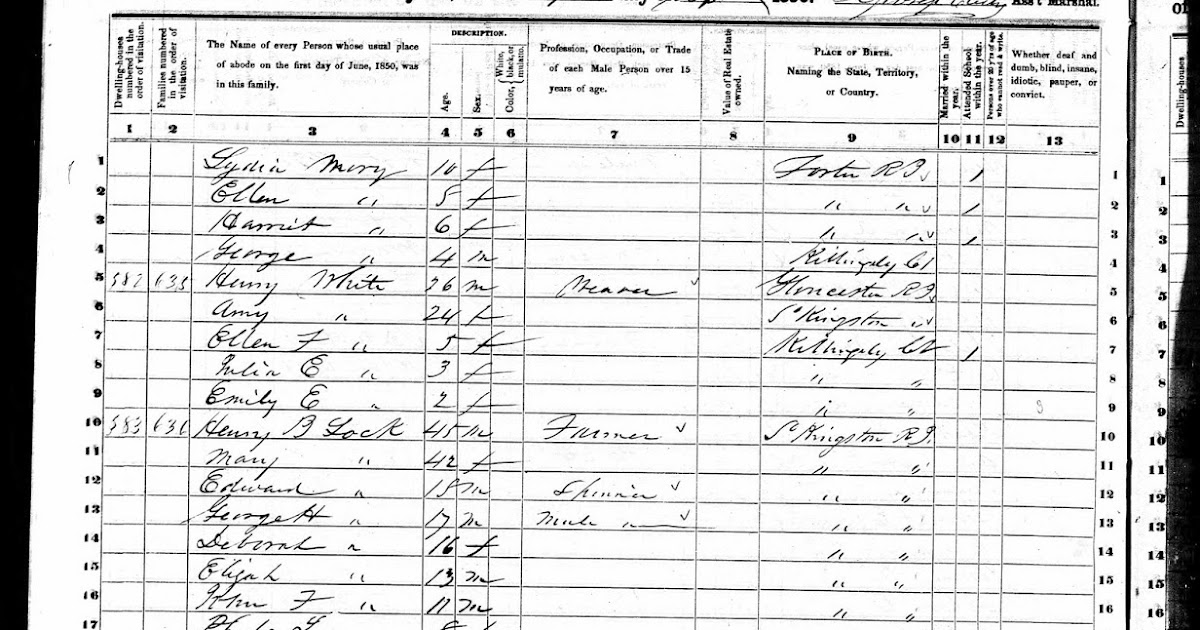 Ass't Marshal.
Dwelling-houses numbered in the order of visitation.
Families numbered in the order of visitation.
The Name of every Person whose usual place of abode on the first day of June, 1850, was in this family.
DESCRIPTION.
Age.
Sex.
Color, { White, black, or mulatto.
Profession, Occupation, or Trade of each Male Person over 15 years of age.
Value of Real Estate owned.
PLACE OF BIRTH.
Naming the State, Territory, or Country.
Married within the year.
Attended School within the year.
Persons over 20 y'rs of age who cannot read & write.
Whether deaf and dumb, blind, insane, idiotic, pauper, or convict.
Dwelling-houses
1 2 3 4 5 6 7 8 9 10 11 12 13
1 Lydia Mory 10 f Foster R I 1 1 1
2 Ellen " 5 f " " 1 2 2
3 Harriet " 6 f " " 1 3 3
4 George " 4 m Killingly Ct 4 4
5 582 635 Henry White 26 m Weaver Glocester R I 5 5
6 Amy " 24 f So Kingston " 6 6
7 Ellen F " 5 f Killingly Ct 1 7 7
8 Julia E " 3 f " " 8 8
9 Emily E " 2 f " " 9 9
10 583 636 Henry B Lock 45 m Farmer So Kingston R I 10 10
11 Mary " 42 f " " 11 11
12 Edward " 18 m Spinner " " 12 12
13 George H " 17 m Mule " " " 13 13
14 Deborah " 16 f " " 14 14
15 Elijah " 13 m " " 15 15
16 John F " 11 m " " 16 16
17